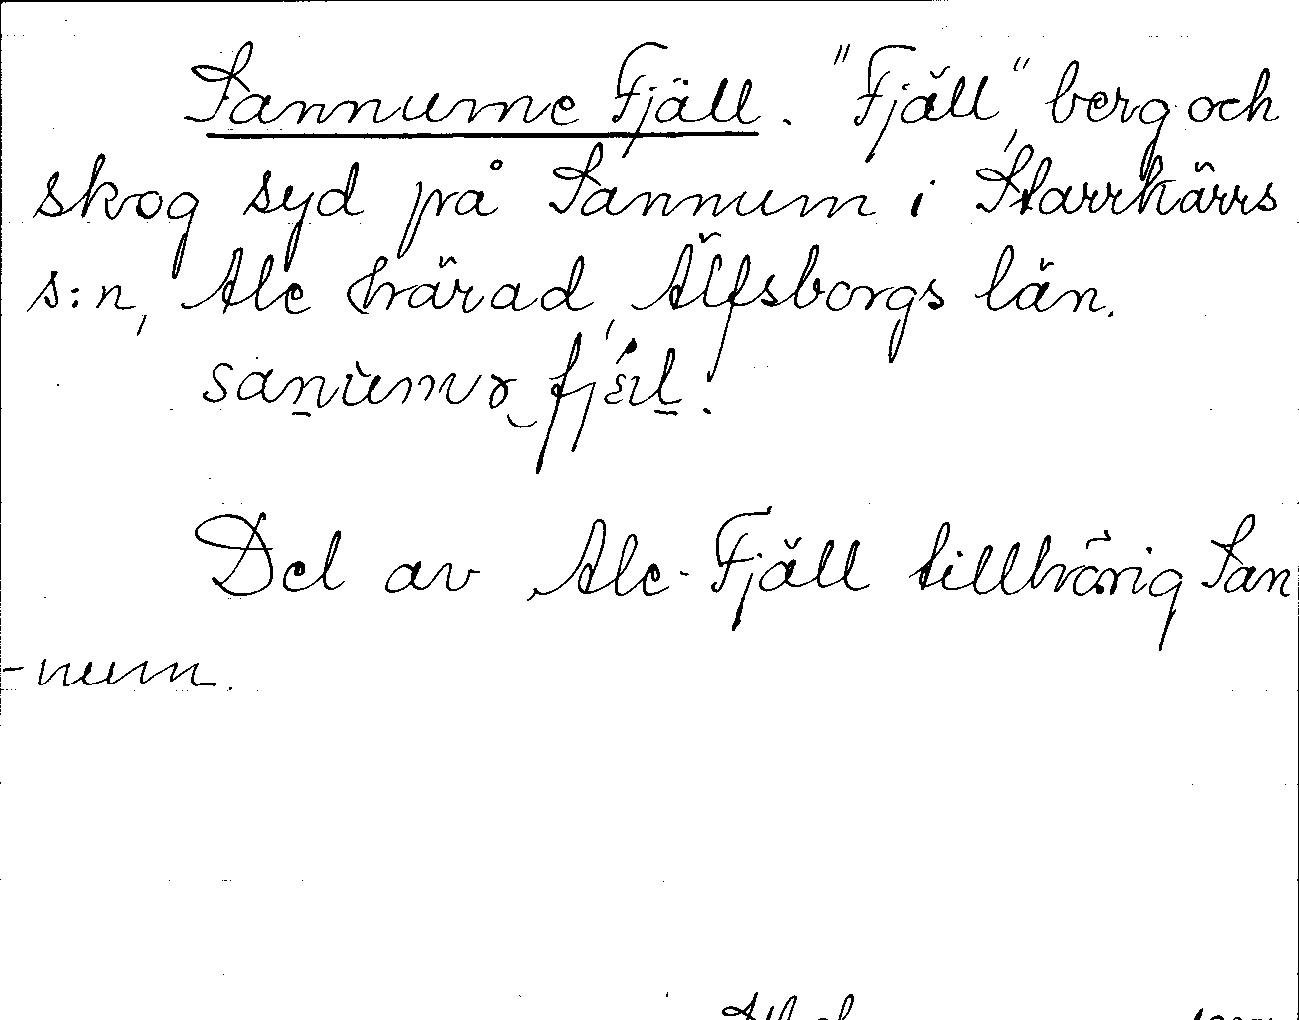 Sannume Fjäll. "Fjäll", berg och
skog syd på Sannum i Starrkärrs
s:n, Ale härad, Älfsborgs län.
Del av Ale-Fjäll tillhörig San
-num.